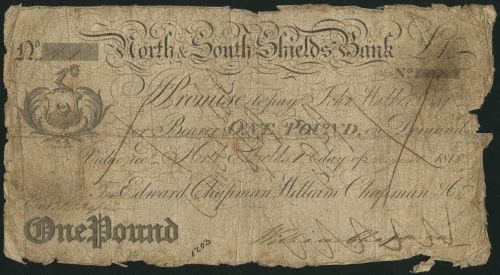 No. North & South Shields Bank £1 ~
No.
I Promise to pay John Walker Esq.
or Bearer ONE POUND, on Demand
Value rec. North Shields 1st day of 1815
For Edward Chapman, William Chapman & Co.
One Pound William Chapman
1203